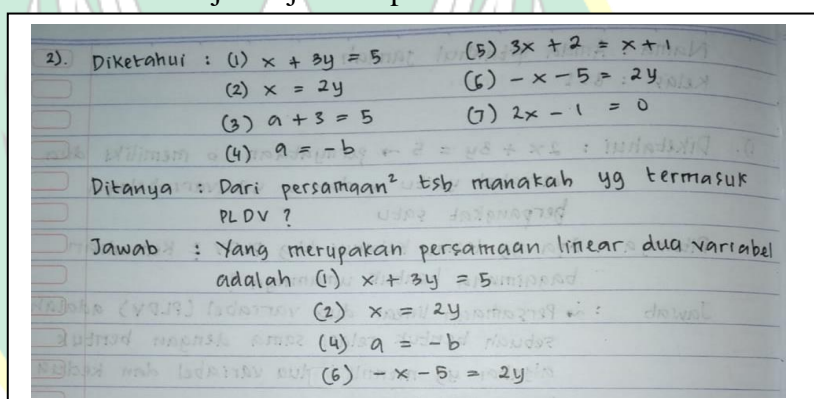 2). Diketahui : (1) x + 3y = 5 (5) 3x + 2 = x + 1
(2) x = 2y (6) - x - 5 = 2y
(3) a + 3 = 5 (7) 2x - 1 = 0
(4) a = - b
Ditanya : Dari persamaan² tsb manakah yg termasuk
PLDV ?
Jawab : Yang merupakan persamaan linear dua variabel
adalah (1) x + 3y = 5
(2) x = 2y
(4) a = - b
(6) - x - 5 = 2y